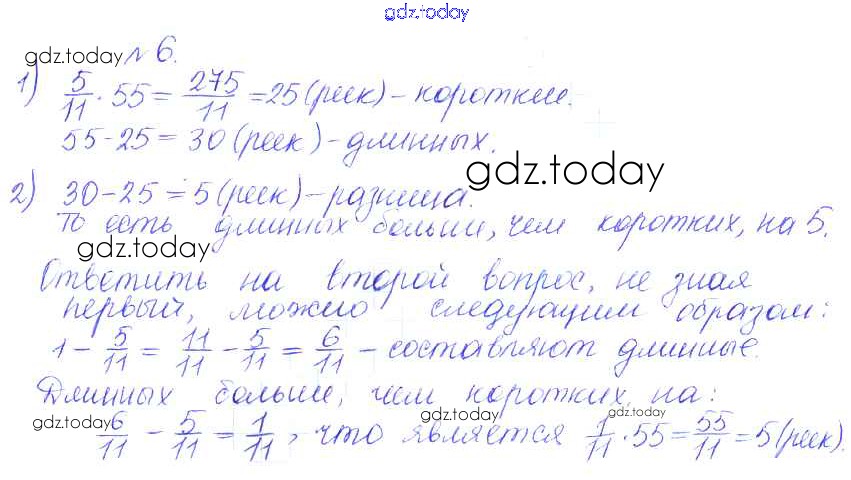 gdz.today
gdz.today № 6.
1) 5/11 · 55 = 275/11 = 25 (реек) - короткие.
55 - 25 = 30 (реек) - длинных.
gdz.today
2) 30 - 25 = 5 (реек) - разница.
То есть длинных больше, чем коротких, на 5.
gdz.today
Ответить на второй вопрос, не зная
первый, можно следующим образом:
1 - 5/11 = 11/11 - 5/11 = 6/11 - составляют длинные.
Длинных больше, чем коротких на:
gdz.today gdz.today gdz.today
6/11 - 5/11 = 1/11, что является 1/11 · 55 = 55/11 = 5 (реек).